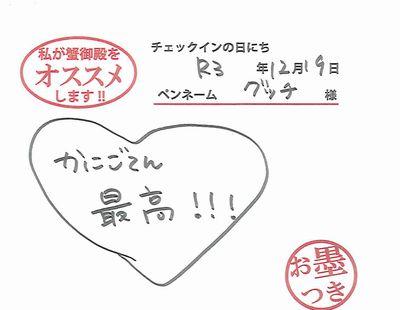 私が蟹御殿を
オススメ
します!!
チェックインの日にち
R3 年12月19日
ペンネーム グッチ 様
かにごてん
最高!!!
お墨
つき